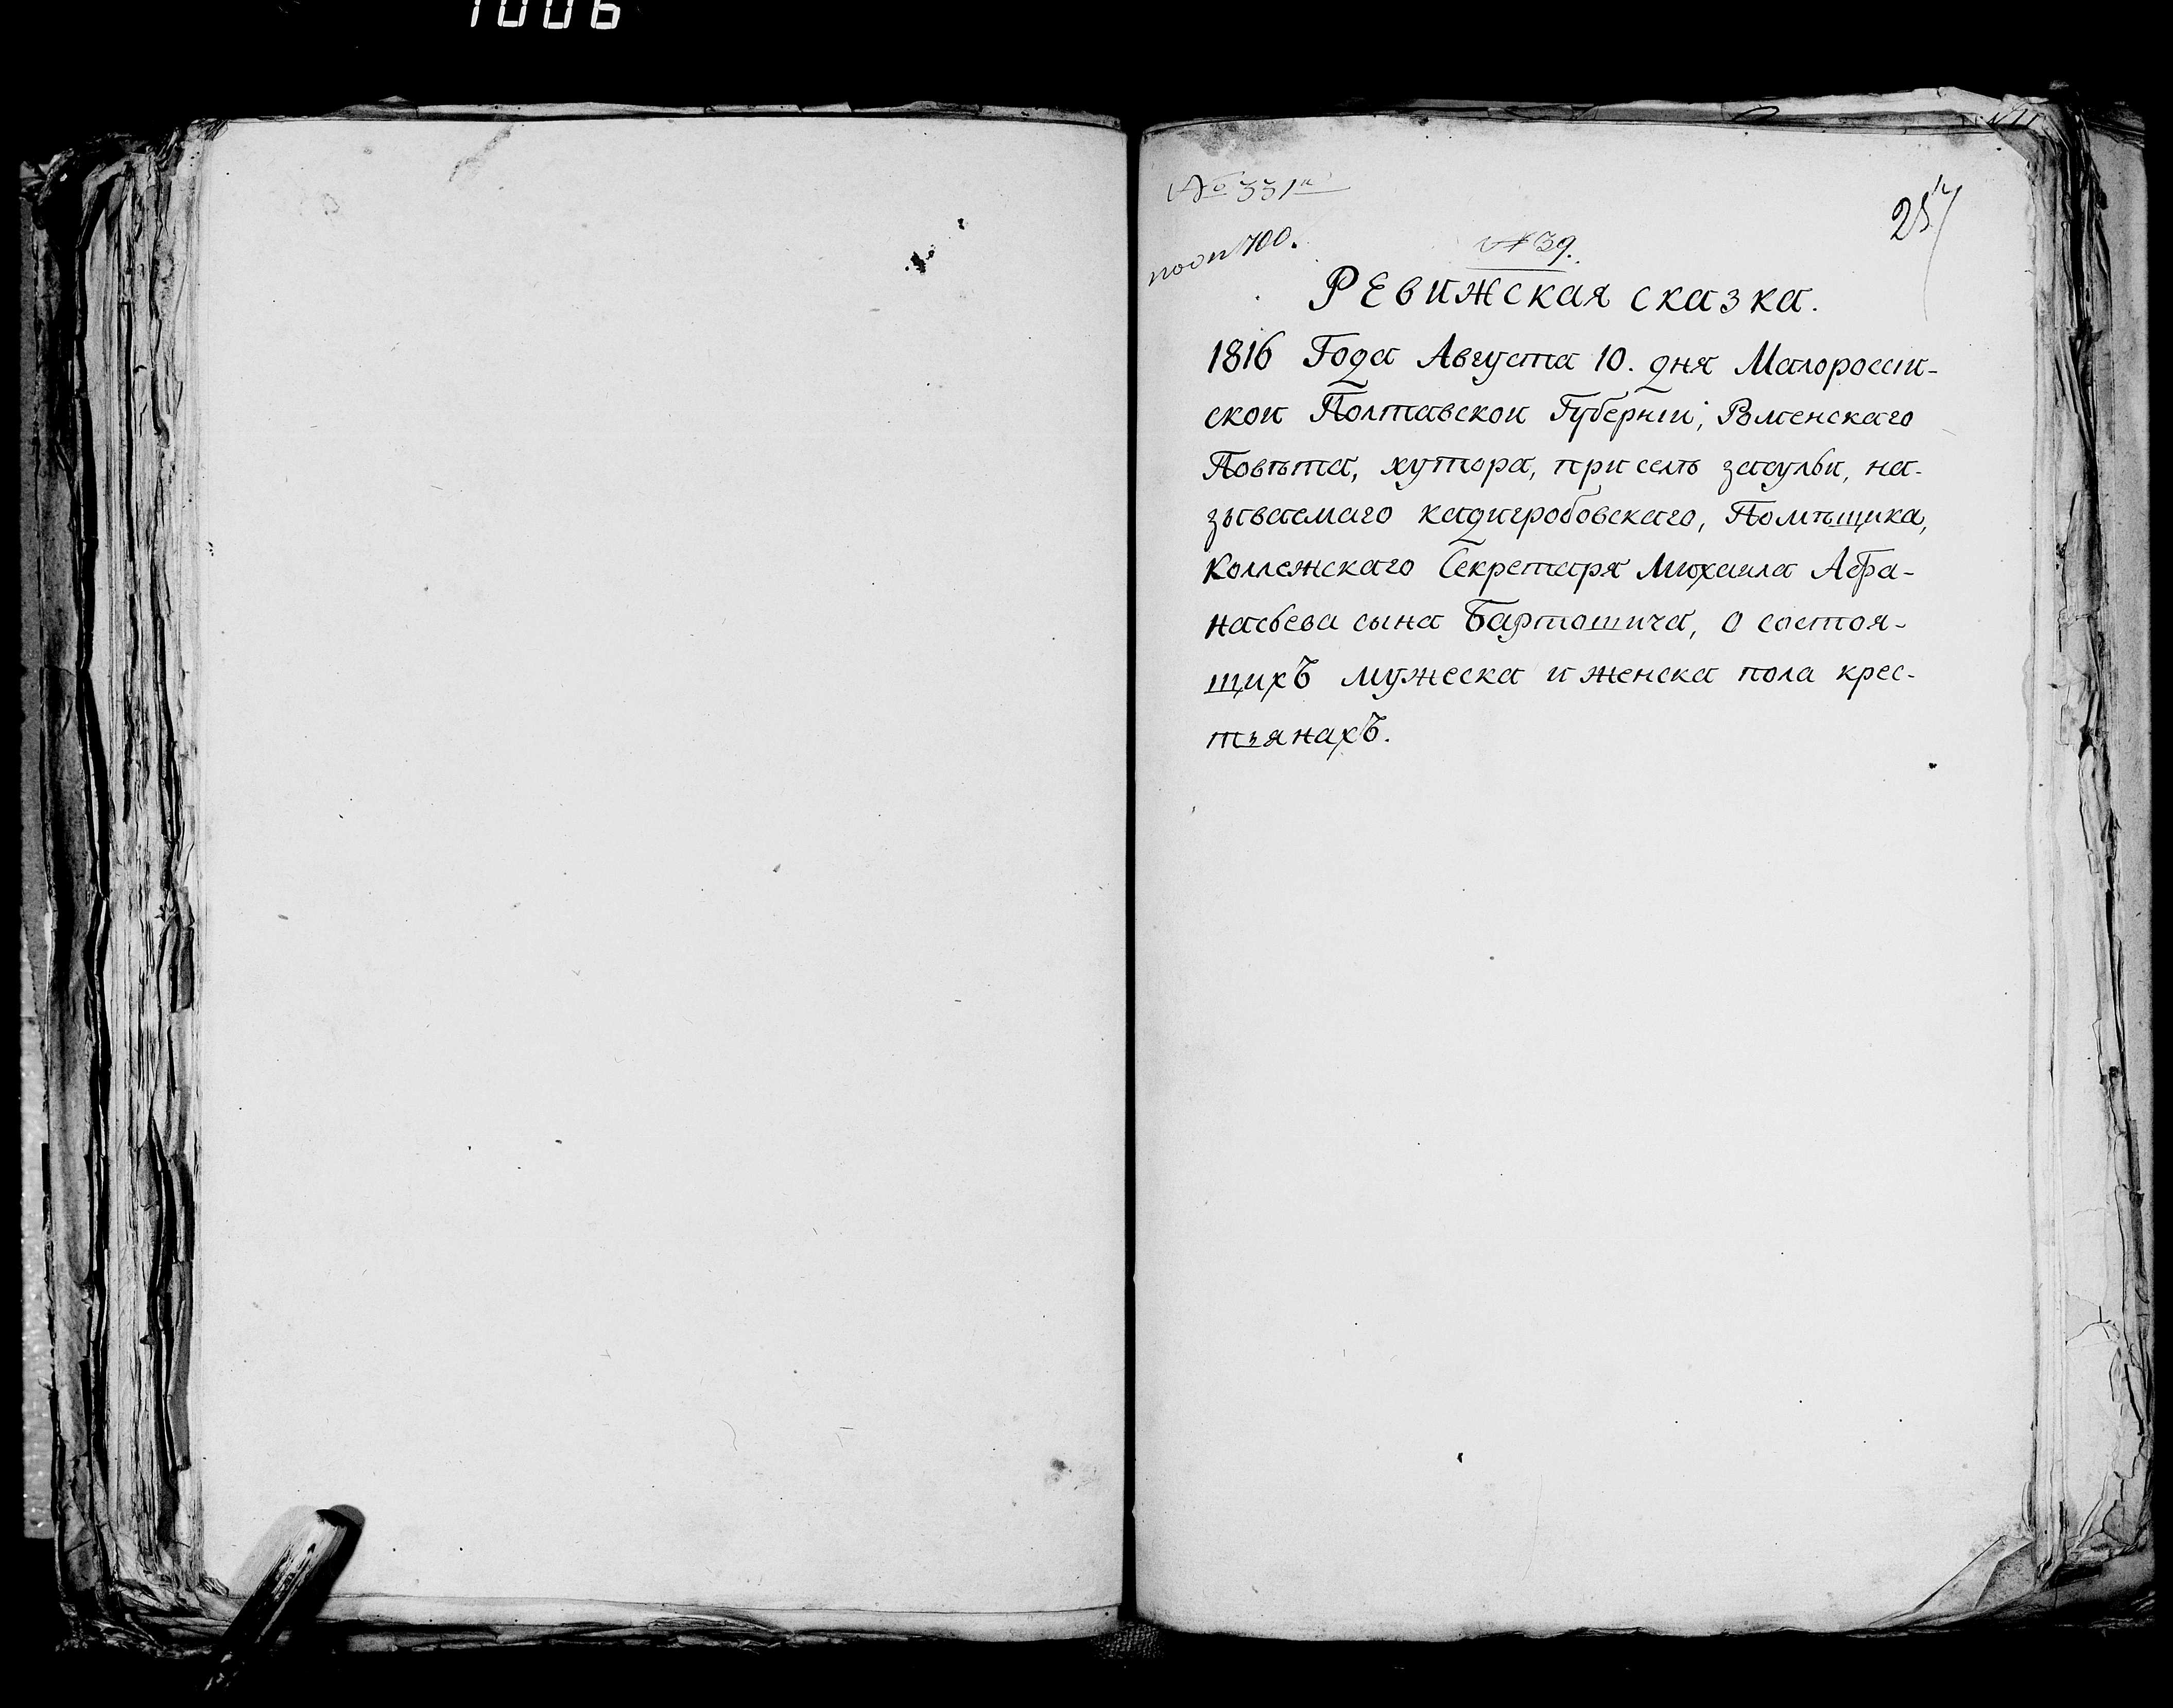 1006
№ 331
№ 39.
РЕВИЖСКАЯ сказка.
1816 Года Августа 10. дня Малоросси-
скои Полтавскои Губернїи, Роменскаго
Повѣта, хутора, при селѣ засульи, на-
зываемаго кадигробовскаго, Помѣщика,
Коллежскаго Секретаря Михаила Афа-
насьева сына Бартошича, о состоя-
щихъ мужеска и женска пола крес-
тьянахъ.